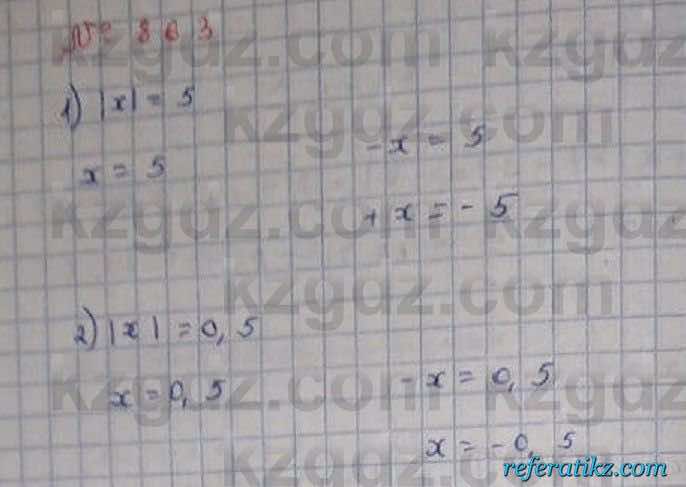 № 863
1) |x| = 5
x = 5
- x = 5
+ x = - 5
2) |x| = 0,5
x = 0,5
- x = 0,5
x = - 0,5
kzgdz.com
referatikz.com